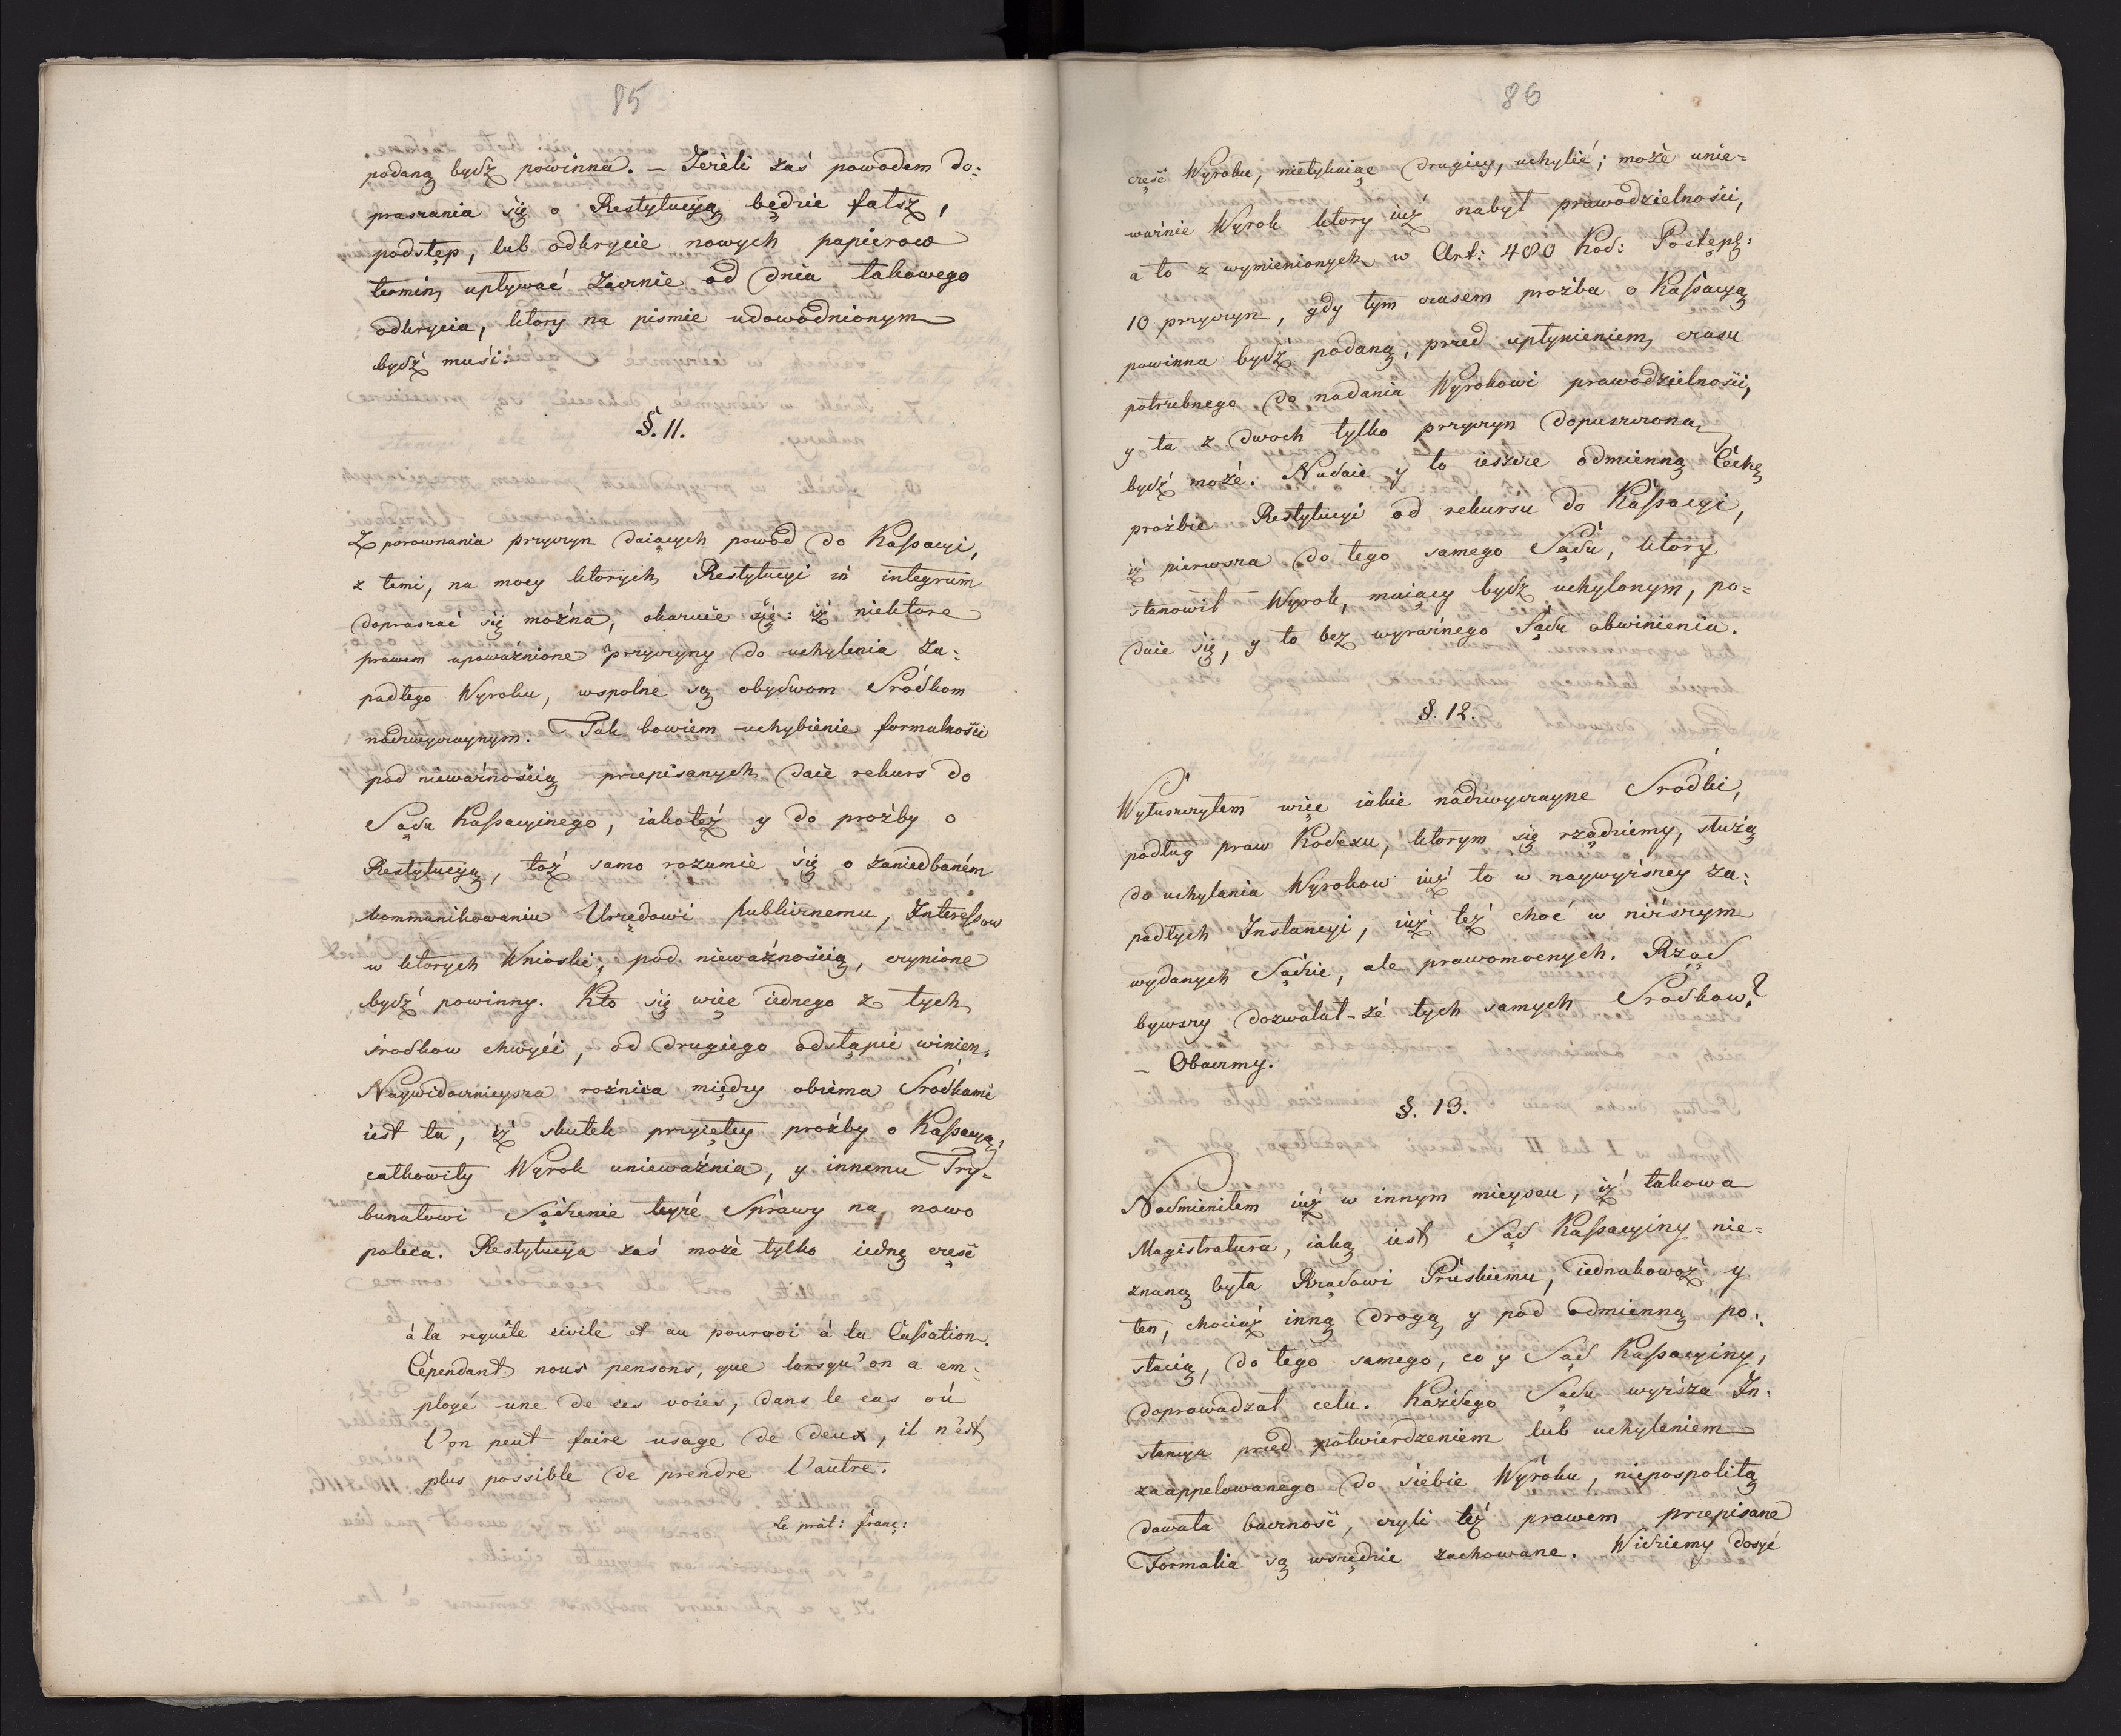 85
podaną bydź powinna. – Jeżeli zaś powodem do-
praszania się o Restytucyą będzie fałsz,
podstęp, lub odkrycie nowych papierow
termin upływać zacznie od dnia takowego
odkrycia, ktory na pismie udowodnionym
bydź musi.
§. 11.
Z porownania przyczyn daiących powod do Kassacyi,
z temi, na mocy ktorych Restytucyi in integrum
dopraszać się można, okazuie się: iż niektore
prawem upoważnione przyczyny do uchylenia za-
padłego Wyroku, wspolne są obydwom Srodkom
nadzwyczaynym. Tak bowiem uchybienie formalności
pod nieważnością przepisanych daie rekurs do
Sądu Kassacyinego, iakoteż y do prożby o
Restytucyą, toż samo rozumie się o zaniedbaném
kommunikowaniu Urzędowi publicznemu, Interessow
w ktorych Wnioski, pod nieważnością, czynione
bydź powinny. Kto się więc iednego z tych
srodkow chwyci, od drugiego odstąpić winien.
Naywidocznieysza rożnica między obiema Srodkami
iest ta, iż skutek przyiętey prożby o Kassacyą,
całkowity Wyrok unieważnia, y innemu Try-
bunałowi Sądzenie teyże Sprawy na nowo
poleca. Restytucya zaś może tylko iedną część
à la requête civile et au pourvoi à la Cassation.
Cépendant nous pensons, que lorsqu'on a em-
ployé une de ces voies, dans le cas où
l'on peut faire usage de deux, il n'est
plus possible de prendre l'autre.
Le prat: franç:
86
część Wyroku, nietykaiąc drugiey, uchylić; może unie-
ważnie Wyrok ktory iuż nabył prawodzielności,
a to z wymienionych w Art: 480 Kod: Postęp:
10 przyczyn, gdy tym czasem prożba o Kassacyą
powinna bydź podaną, przed upłynieniem czasu
potrzebnego do nadania Wyrokowi prawodzielności,
y ta z dwoch tylko przyczyn dopuszczona
bydź może. Nadaie y to ieszcze odmienną Cechę
prożbie Restytucyi od rekursu do Kassacyi,
iż pierwsza do tego samego Sądu, ktory
stanowił Wyrok, maiący bydź uchylonym, po-
daie się, y to bez wyrażnego Sądu obwinienia.
§. 12.
Wyłuszczyłem więc iakie nadzwyczayne Srodki,
podług praw Kodexu, ktorym się rządziemy, służą
do uchylania Wyrokow iuż to w naywyższey za-
padłych Instancyi, iuż też choć w niższym
wydanych Sądzie, ale prawomocnych. Rząd
bywszy dozwalał-że tych samych Srodkow?
– Obaczmy.
§. 13.
Nadmieniłem iuż w innym mieyscu, iż takowa
Magistratura, iaką iest Sąd Kassacyiny nie-
znaną była Rządowi Pruskiemu, iednakowoż y
ten, chociaż inną drogą y pod odmienną po-
stacią, do tego samego, co y Sąd Kassacyiny,
doprowadzał celu. Każdego Sądu wyższa In-
stancya przed potwierdzeniem lub uchyleniem
zaappelowanego do siebie Wyroku, niepospolitą
dawała baczność, czyli też prawem przepisane
Formalia są wszędzie zachowane. Widziemy dosyć